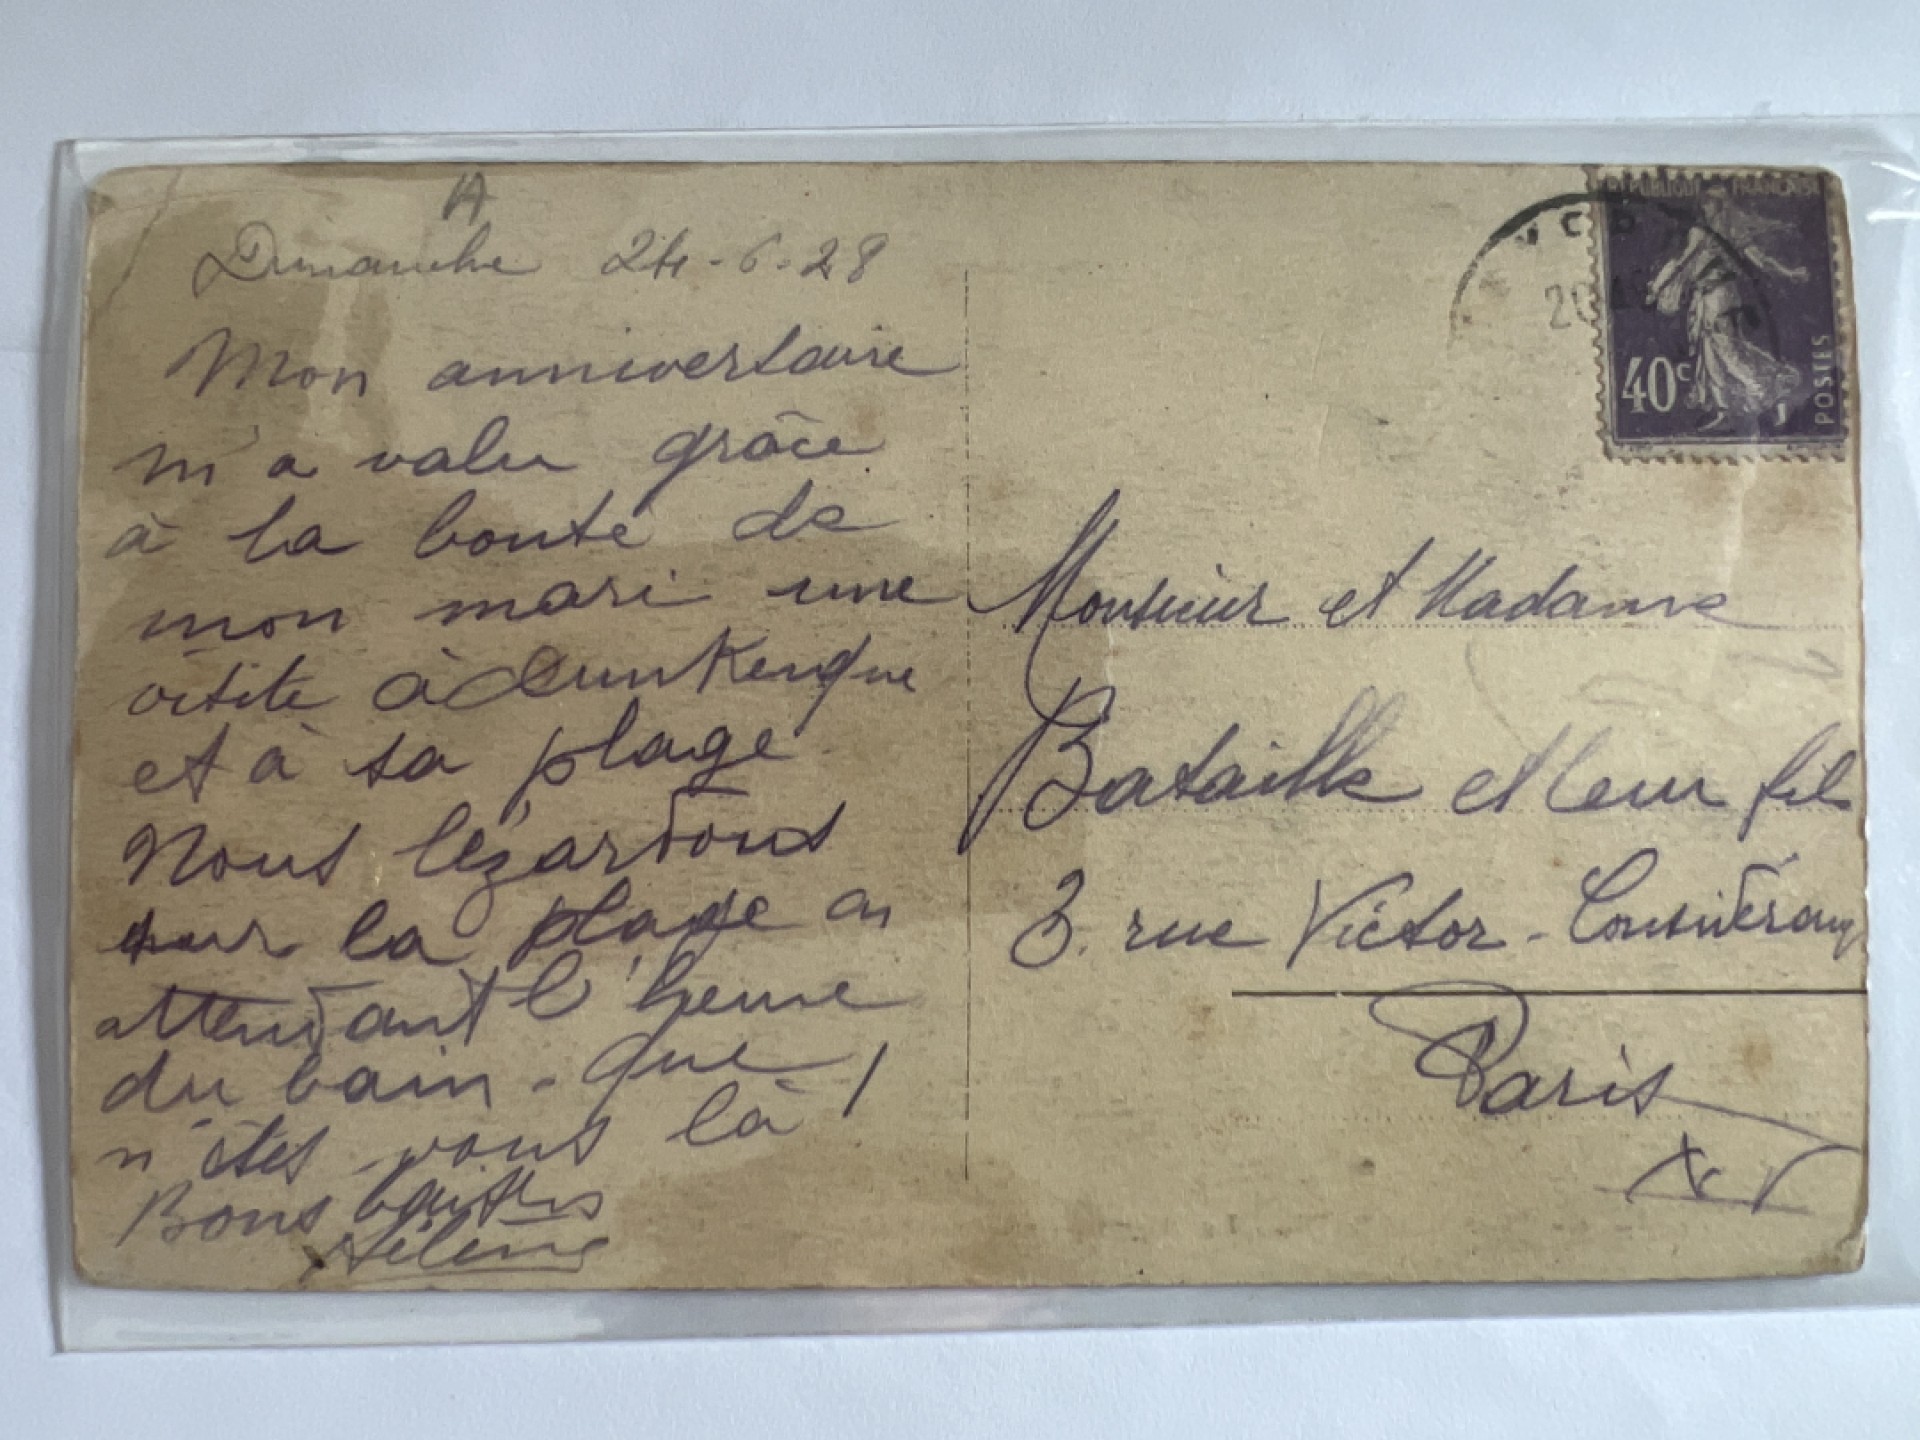 A
Dimanche 24-6-28
Mon anniversaire
m'a valu grâce
à la bonté de
mon mari une
visite à Dunkerque
et à sa plage
Nous lézardons
sur la plage en
attendant l'heure
du bain - que
n'êtes vous là !
Bons baisers
Hélène
REPUBLIQUE FRANCAISE
40c
POSTES
Monsieur et Madame
Bataille et leur fils
3. rue Victor-Considérant
Paris
XIV